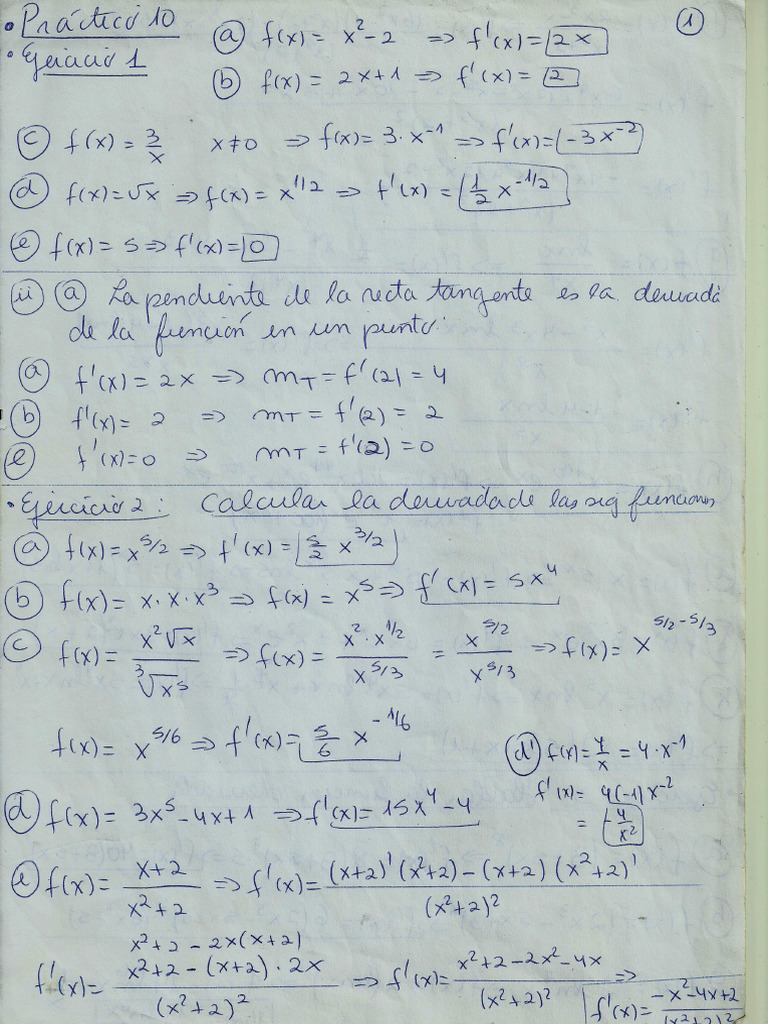 • Práctico 10
①
• Ejercicio 1
ⓐ f(x) = x²-2 ⇒ f'(x) = 2x
ⓑ f(x) = 2x+1 ⇒ f'(x) = 2
ⓒ f(x) = 3/x x≠0 ⇒ f(x) = 3·x⁻¹ ⇒ f'(x) = -3x⁻²
ⓓ f(x) = √x ⇒ f(x) = x^1/2 ⇒ f'(x) = 1/2 x^-1/2
ⓔ f(x) = 5 ⇒ f'(x) = 0
ii ⓐ La pendiente de la recta tangente es la derivada
de la función en un punto.
ⓐ f'(x) = 2x ⇒ mT = f'(2) = 4
ⓑ f'(x) = 2 ⇒ mT = f'(2) = 2
ⓔ f'(x) = 0 ⇒ mT = f'(2) = 0
• Ejercicio 2: Calcular la derivada de las sig funciones
ⓐ f(x) = x^5/2 ⇒ f'(x) = 5/2 x^3/2
ⓑ f(x) = x·x·x³ ⇒ f(x) = x⁵ ⇒ f'(x) = 5x⁴
ⓒ f(x) = x²√x / ∛x⁵ ⇒ f(x) = x²·x^1/2 / x^5/3 = x^5/2 / x^5/3 ⇒ f(x) = x^5/2-5/3
f(x) = x^5/6 ⇒ f'(x) = 5/6 x^-1/6
ⓓ' f(x) = 4/x = 4·x⁻¹
f'(x) = 4(-1)x⁻²
= -4/x²
ⓓ f(x) = 3x⁵-4x+1 ⇒ f'(x) = 15x⁴-4
ⓔ f(x) = x+2 / x²+2 ⇒ f'(x) = (x+2)'(x²+2)-(x+2)(x²+2)' / (x²+2)²
x²+2-2x(x+2)
f'(x) = x²+2-(x+2)·2x / (x²+2)² ⇒ f'(x) = x²+2-2x²-4x / (x²+2)² ⇒
f'(x) = -x²-4x+2 / (x²+2)²